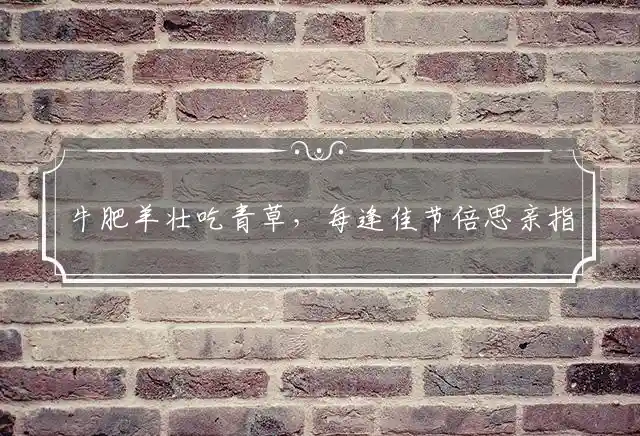 牛肥羊壮吃青草，每逢佳节倍思亲指